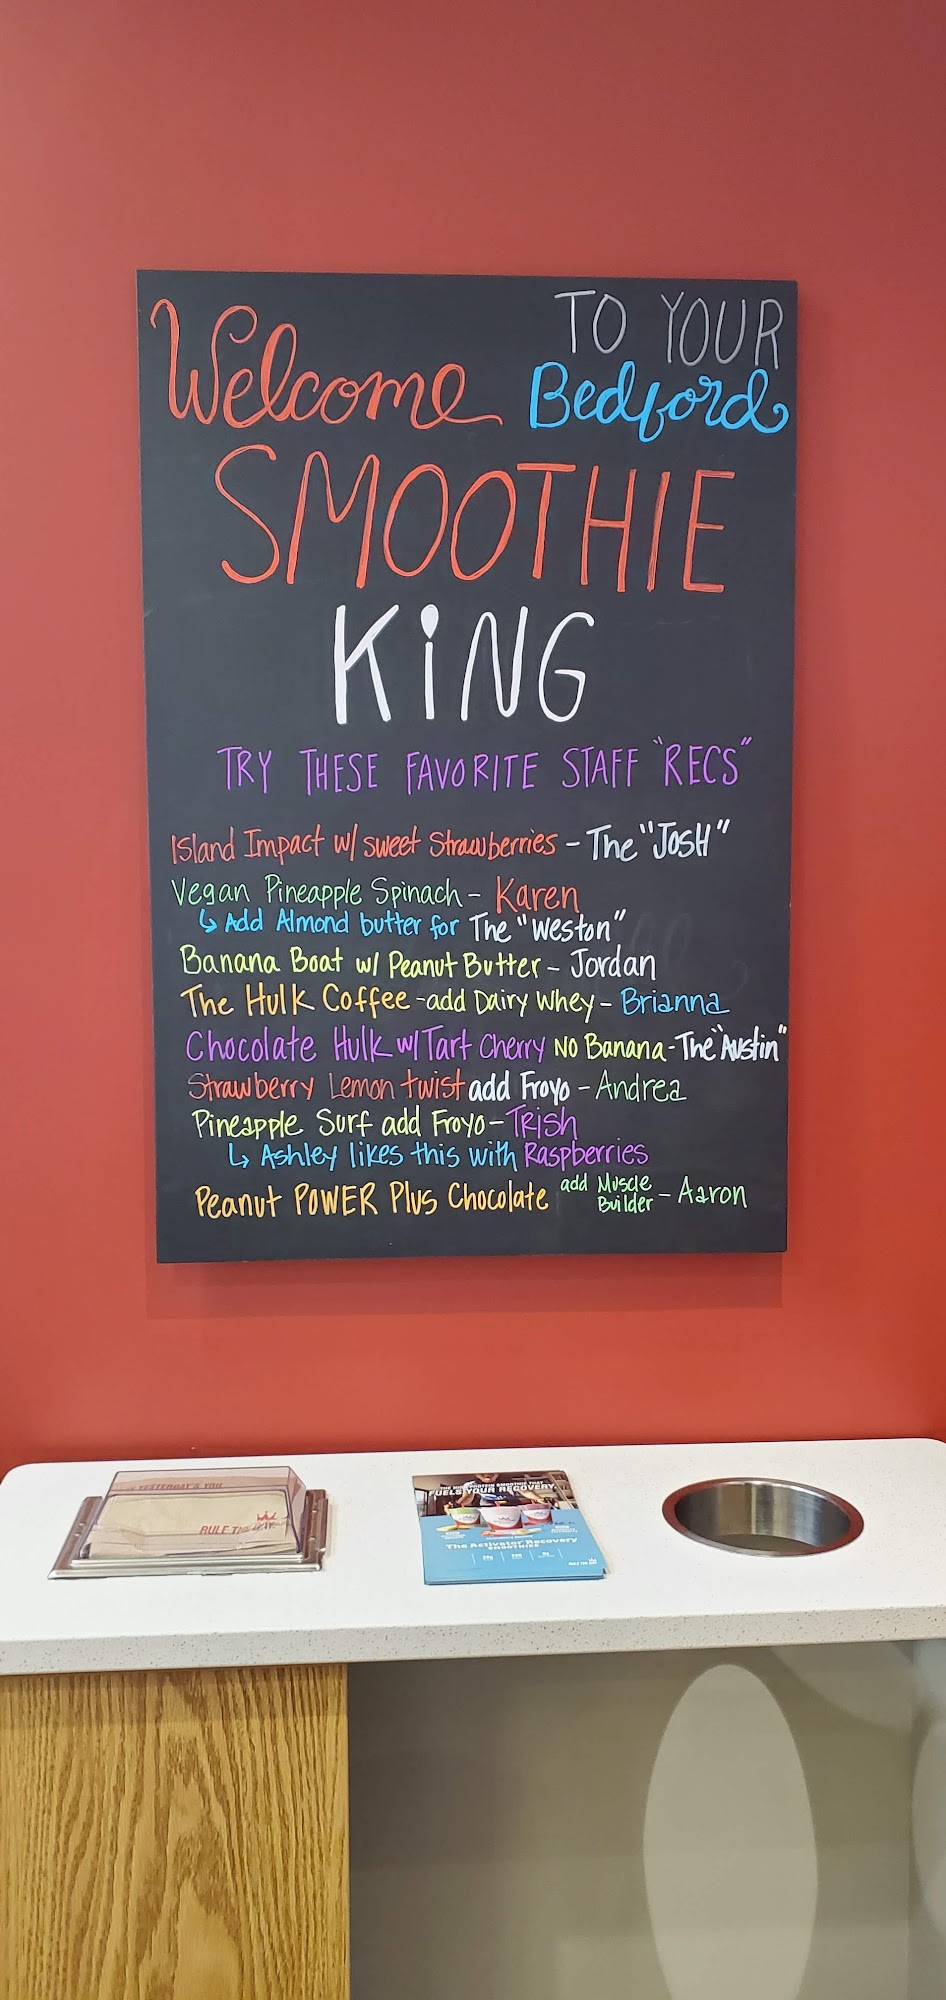 Welcome TO YOUR
Bedford
SMOOTHIE
KiNG
TRY THESE FAVORITE STAFF "RECS"
Island Impact w/ sweet Strawberries - The "JOSH"
Vegan Pineapple Spinach - Karen
↳ Add Almond butter for The "Weston"
Banana Boat w/ Peanut Butter - Jordan
The Hulk Coffee - add Dairy Whey - Brianna
Chocolate Hulk w/ Tart Cherry No Banana - The "Austin"
Strawberry Lemon twist add Froyo - Andrea
Pineapple Surf add Froyo - Trish
↳ Ashley likes this with Raspberries
Peanut POWER Plus Chocolate add Muscle Builder - Aaron
YESTERDAY'S YOU
RULE THE DAY.
FUELS YOUR RECOVERY
The Activator Recovery
SMOOTHIES